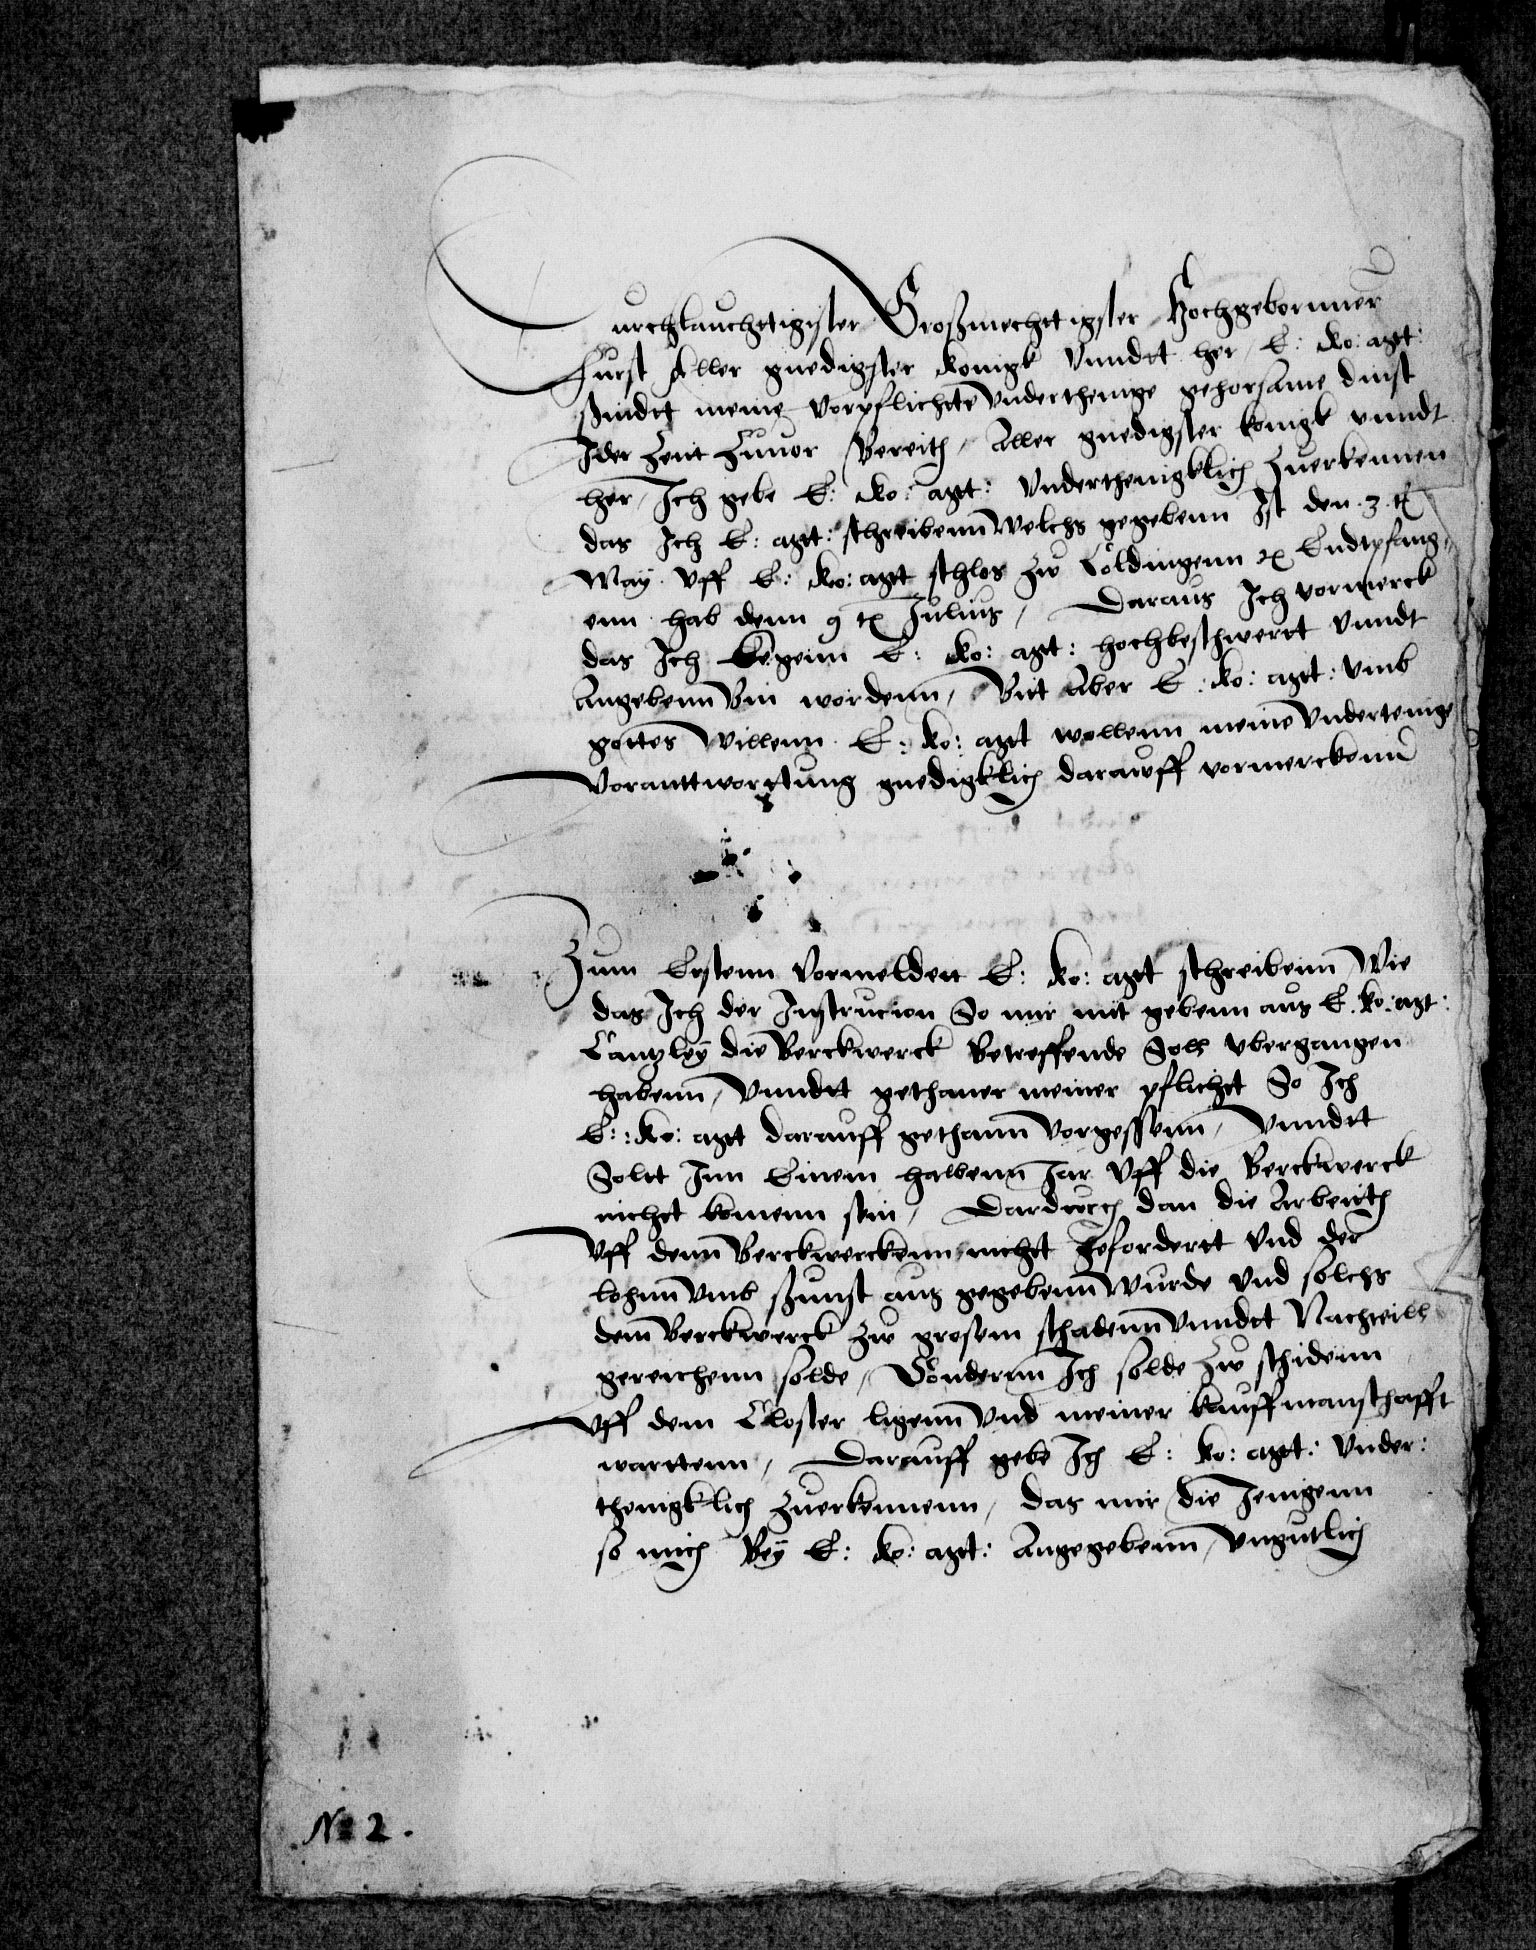 Durchlauchttigister Großmechttigster Hochgebornner
Furst Aller gnedigster konigk Vnndtt her, E: ko: agt:
Sindtt meine vorpflichtte vnderthenige gehorsame dinst
Ider Zeit Zuuor Bereith, Aller gnedigster konigk vnndt
her, Ich gebe E: ko: agt: Vnderthenigklich Zuerkennen
das Ich E: agt: schreibenn Welchs gegebenn Ist den 3 t
May vff E: ko: agt schlos Zw Coldingenn Endtpfang
enn hab denn 9 t Julius, Daraus Ich vormerck
das Ich kegenn E: ko: agt: hochbeschwertt vnndt
Angebenn Bin wordenn, Bit Aber E: ko: agt: vmb
gottes Willenn E: ko: agt wollenn meine Vndertenige
Voranttworttung gnedigklich darauff vormerckenn
Zum Erstenn Vormeldett E: ko: agt schreibenn Wie
das Ich der Instrucion So mir mit gebenn aus E. ko: agt:
Cantzley die Berckwerck Betreffende Soll vbergangen
habenn, Vnndtt gethaner meiner pflichtt So Ich
E: ko: agt darauff gethann vorgessenn, Vnndtt
Soltt Inn Einem halbenn Jar Vff die Berckwerck
nichtt komenn sein, Dardurch dan die Arbeith
Vff denn Berckwerckenn nichtt gefordertt Vnd der
lohnn vmb sunst aus gegebenn Wurde Vnd solchs
dem Berckwerck Zw grosem schadenn Vnndtt Nachteill
gereichenn solde, Sonderrn Ich solde Zw schidenn
Vff dem Closter ligenn Vnd meiner kauffmanschafft
warttenn, Darauff gebe Ich E: ko: agt: Vnder:
thenigklich Zuerkennenn, das mir die Jenigenn
so mich Bey E: ko: agt: Angegebenn, Vngutlich
No 2.